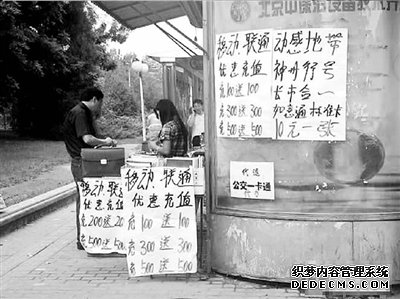 北京
移动 联通 动感地带
优惠充值 神州行号
充100送100 合一
充300送300 如意通标准卡
充500送500 10元一张
公交一卡通
移动
优惠充
充200送20
充500送500
移动 联通
优惠充值
充100送100
充300送300
充500送500
织梦内容管理系统
DEDECMS.COM